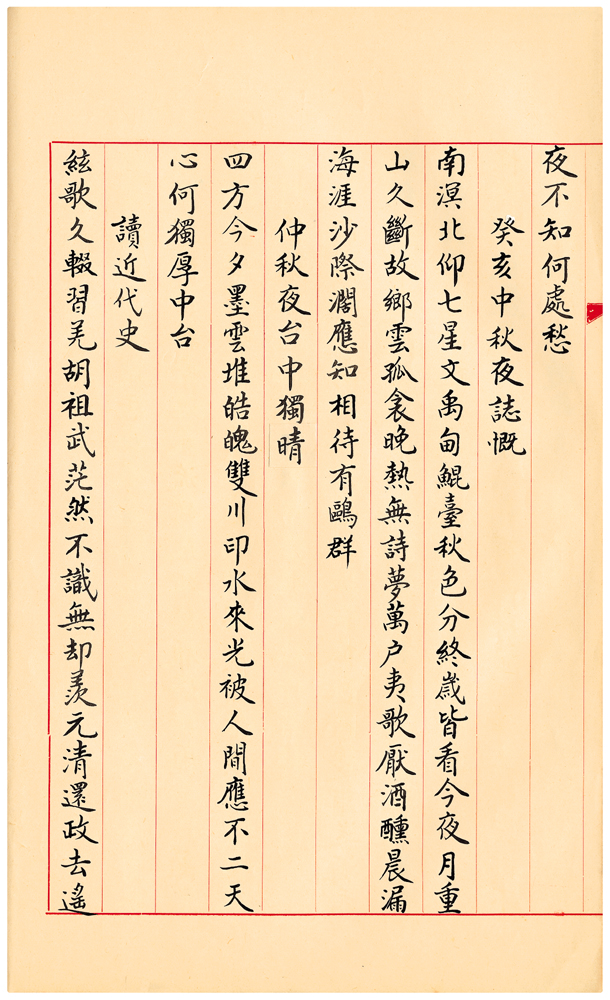 夜不知何處愁
癸亥中秋夜誌慨
南溟北仰七星文禹甸鯤臺秋色分終歲皆看今夜月重
山久斷故鄉雲孤衾晚熱無詩夢萬户夷歌厭酒醺晨漏
海涯沙際濶應知相待有鷗群
仲秋夜台中獨晴
四方今夕墨雲堆皓魄雙川印水來光被人間應不二天
心何獨厚中台
讀近代史
絃歌久輟習羌胡祖武茫然不識無却羨元清還政去遙